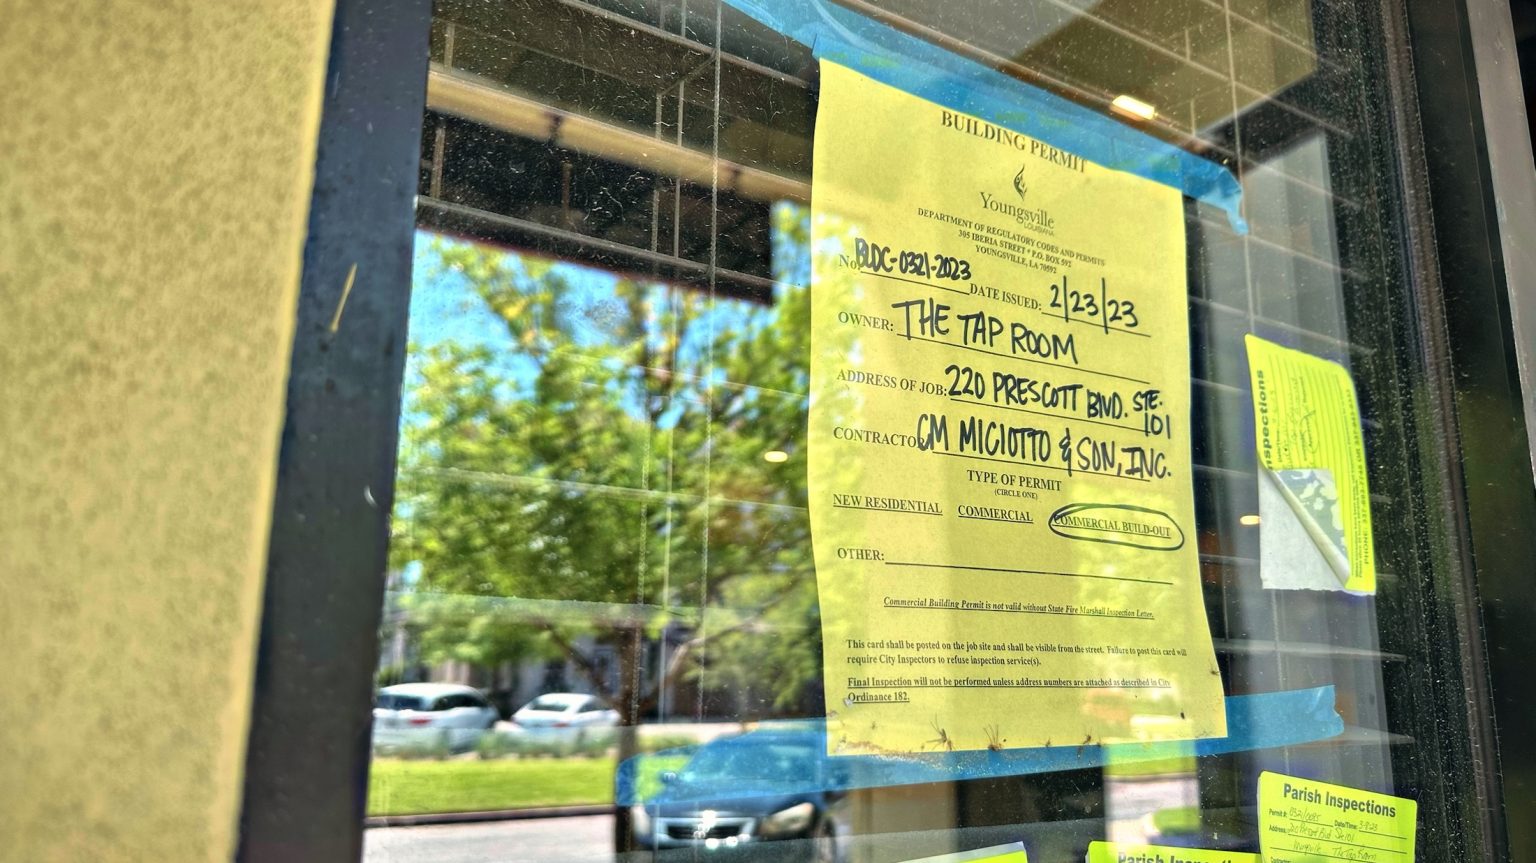 BUILDING PERMIT
Youngsville
LOUISIANA
DEPARTMENT OF REGULATORY CODES AND PERMITS
305 IBERIA STREET * P.O. BOX 592
YOUNGSVILLE, LA 70592
No. BLDC-0321-2023 DATE ISSUED: 2/23/23
OWNER: THE TAP ROOM
ADDRESS OF JOB: 220 PRESCOTT BLVD. STE. 101
CONTRACTOR CM MICIOTTO & SON, INC.
TYPE OF PERMIT
(CIRCLE ONE)
NEW RESIDENTIAL COMMERCIAL COMMERCIAL BUILD-OUT
OTHER:
Commercial Building Permit is not valid without State Fire Marshall Inspection Letter.
This card shall be posted on the job site and shall be visible from the street. Failure to post this card will
require City Inspectors to refuse inspection service(s).
Final Inspection will not be performed unless address numbers are attached as described in City
Ordinance 182.
nspections
Parish Inspections
Permit #: Date/Time: 3-8-23
Address:
Parish Inspecti